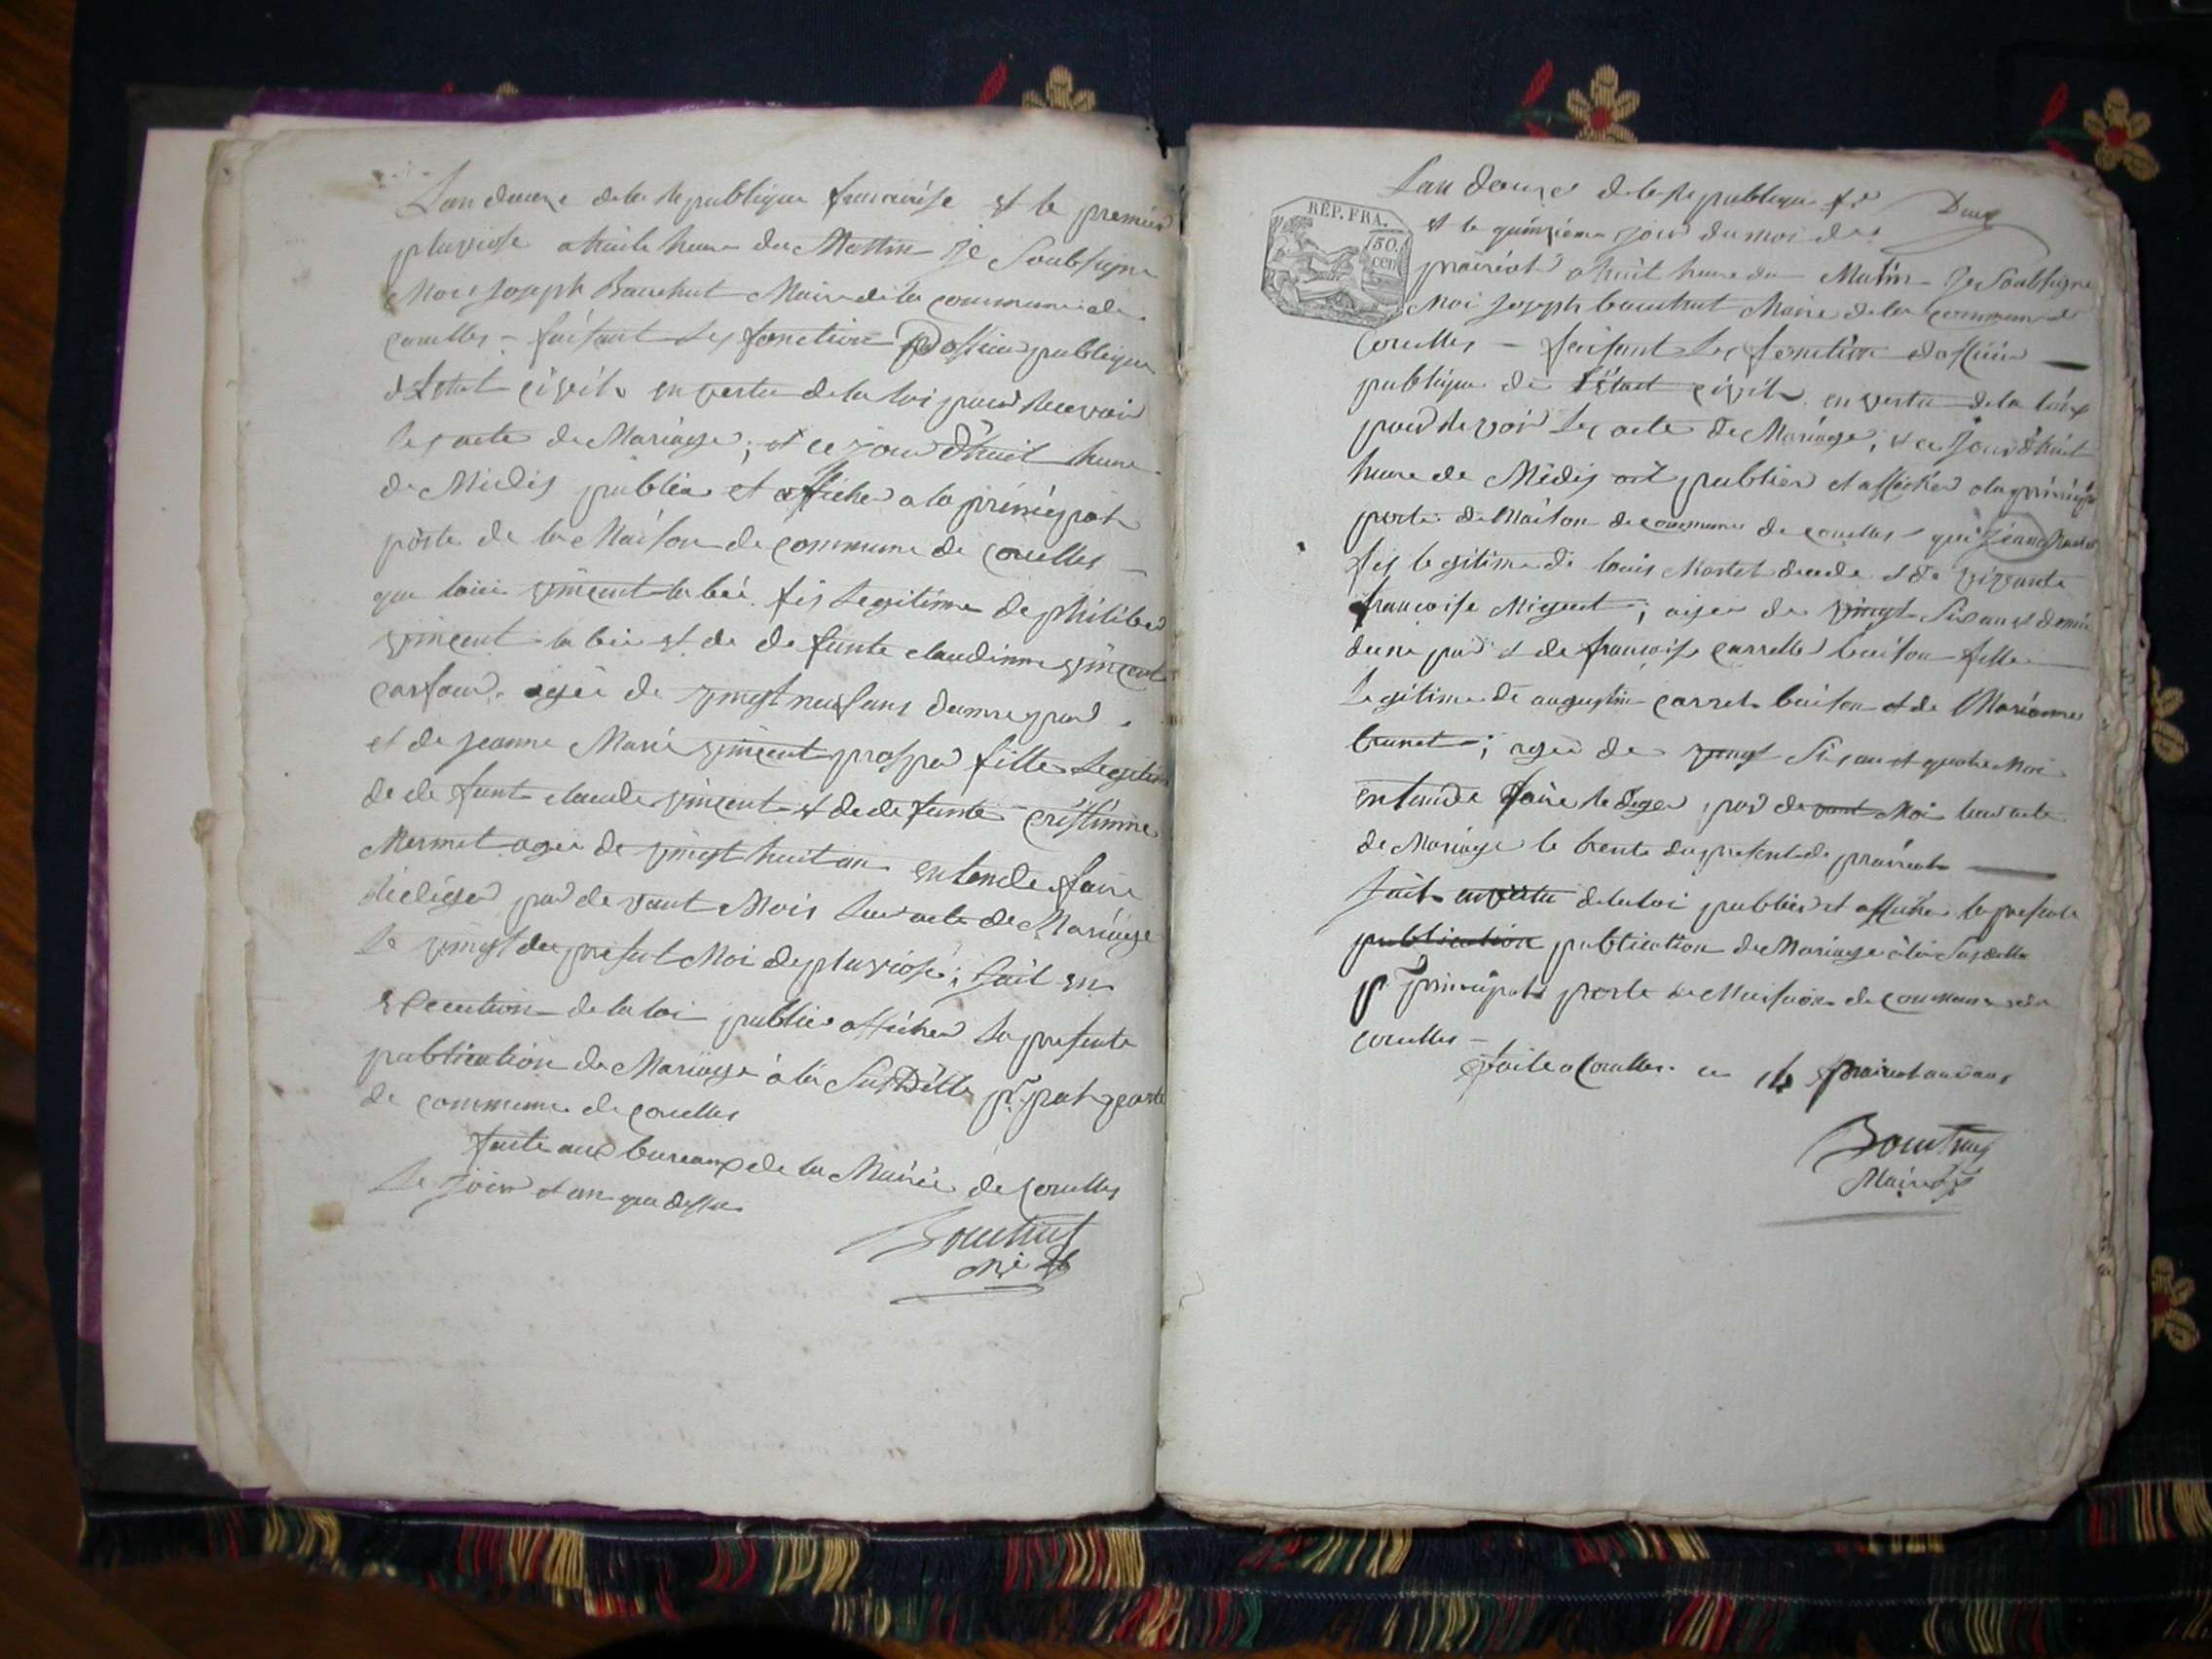 Lan douze de la Republique francaise et le premier
pluviose a huite heure du Mattin Je Soubsigne
Moi Joseph Bouchut Maire de la commune de
coeulles - faisant les fonction d'officier publique
d'Létat civil en vertu de la loi pour recevoir
les acte de Mariage; et ce jour d'huit heure
de Midis publier et afficher a la principale
porte de la Maison de commune de coeulles -
que loüi vincent la bée fis Legitime de philibert
vincent la bée et de defunte claudinne vincent
carfour agée de vingt neuf ans dunne pard
et de jeanne Marie vincent prosper fille Legitime
de defunt claude vincent et de defunte cristinne
Mermet agée de vingt huit an entende faire
rédiger pard devant Mois leur acte de Mariage
le vingt du present Moi de pluviose; fait en
execution de la loi publier afficher la presente
publication de Mariage à la Susditte pr.pale porte
de commune de coeulles
faite aux bureaux de la Mairie de coeulles
Le Jour et an que dessus
Bouchut
Me
Lan douze de la Republique fse
Deux
REP. FRA.
50.
cen
et le quinzième jour du moi de
prairéal a huit heure du Matin - Je Soubsigne
Moi Joseph bouchut Maire de la commune de
Coeulles - faisant les fonction d'officier
publique de l'état civil en vertu de la loix
pour Les acte de Mariage; et ce jour d'huit
heure de Midis ait publier et afficher a la principale
porte de Maison de commune de coeulles - que Jean
fis legitime de louis Martel et de vivante
françoise Miguet; agée de vingt Six ans et demie
dune pard et de françoise carrelle buison fille
Legitime de augustin carret buison et de Marianne
brunet; agée de vingt Six an et quatre Moi
entende faire rediger pard devant Moi leur acte
de Mariage le trente du present de prairéal
fait en vertu de la loi publier et afficher la presente
publication publication de Mariage à la Susditte
pr principale porte de Maison de commune de
coeulles -
faite a Coeulles ce 15 prairéal an
Bouchut
Maire